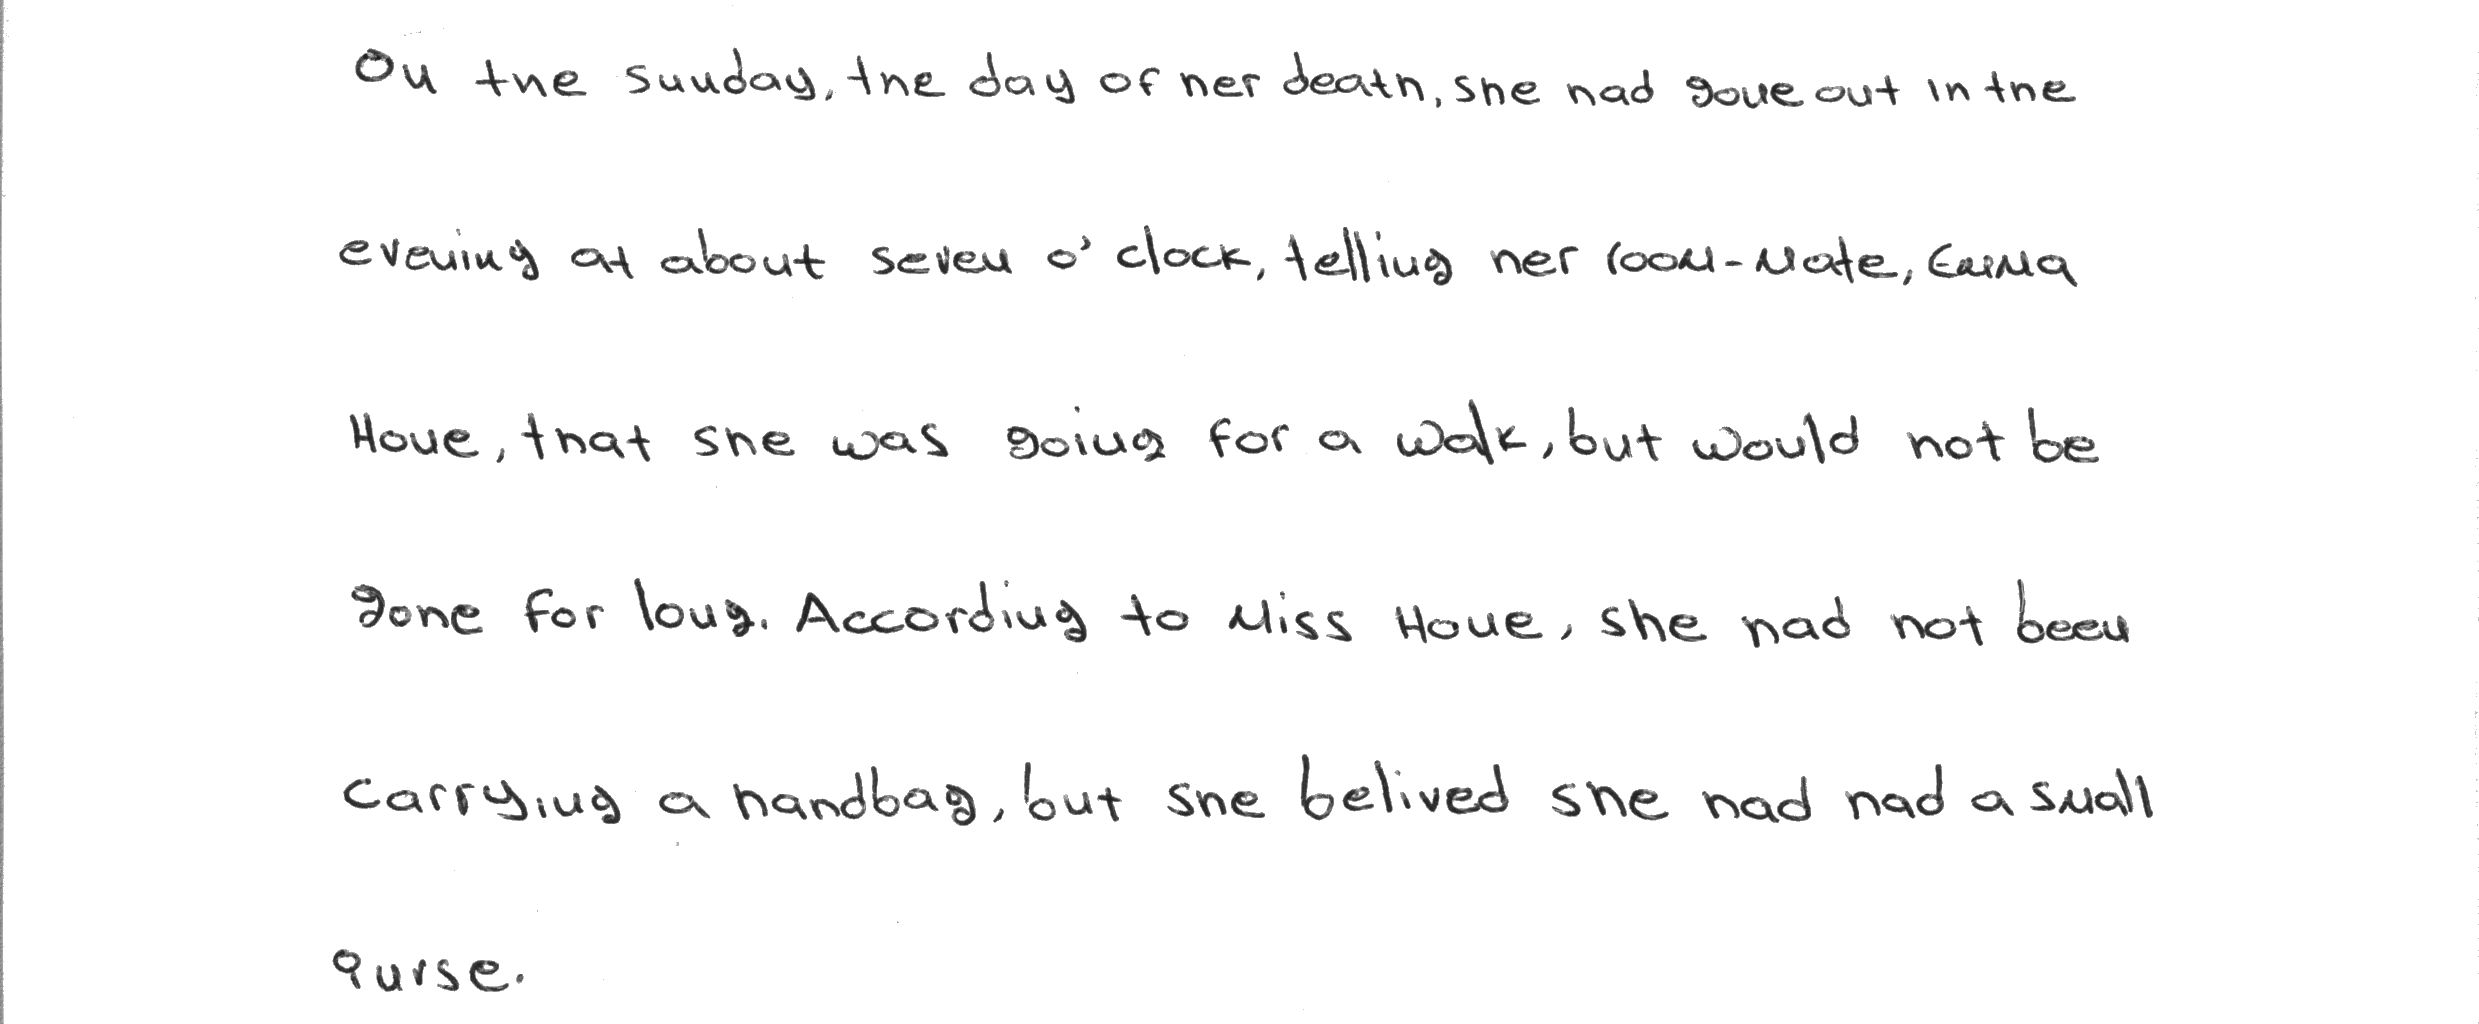 On the sunday, the day of her death, she had gone out in the
evening at about seven o' clock, telling her room-mate,
Hone, that she was going for a walk, but would not be
gone for long. According to Miss Hone, she had not been
carrying a handbag, but she belived she had had a small
purse.